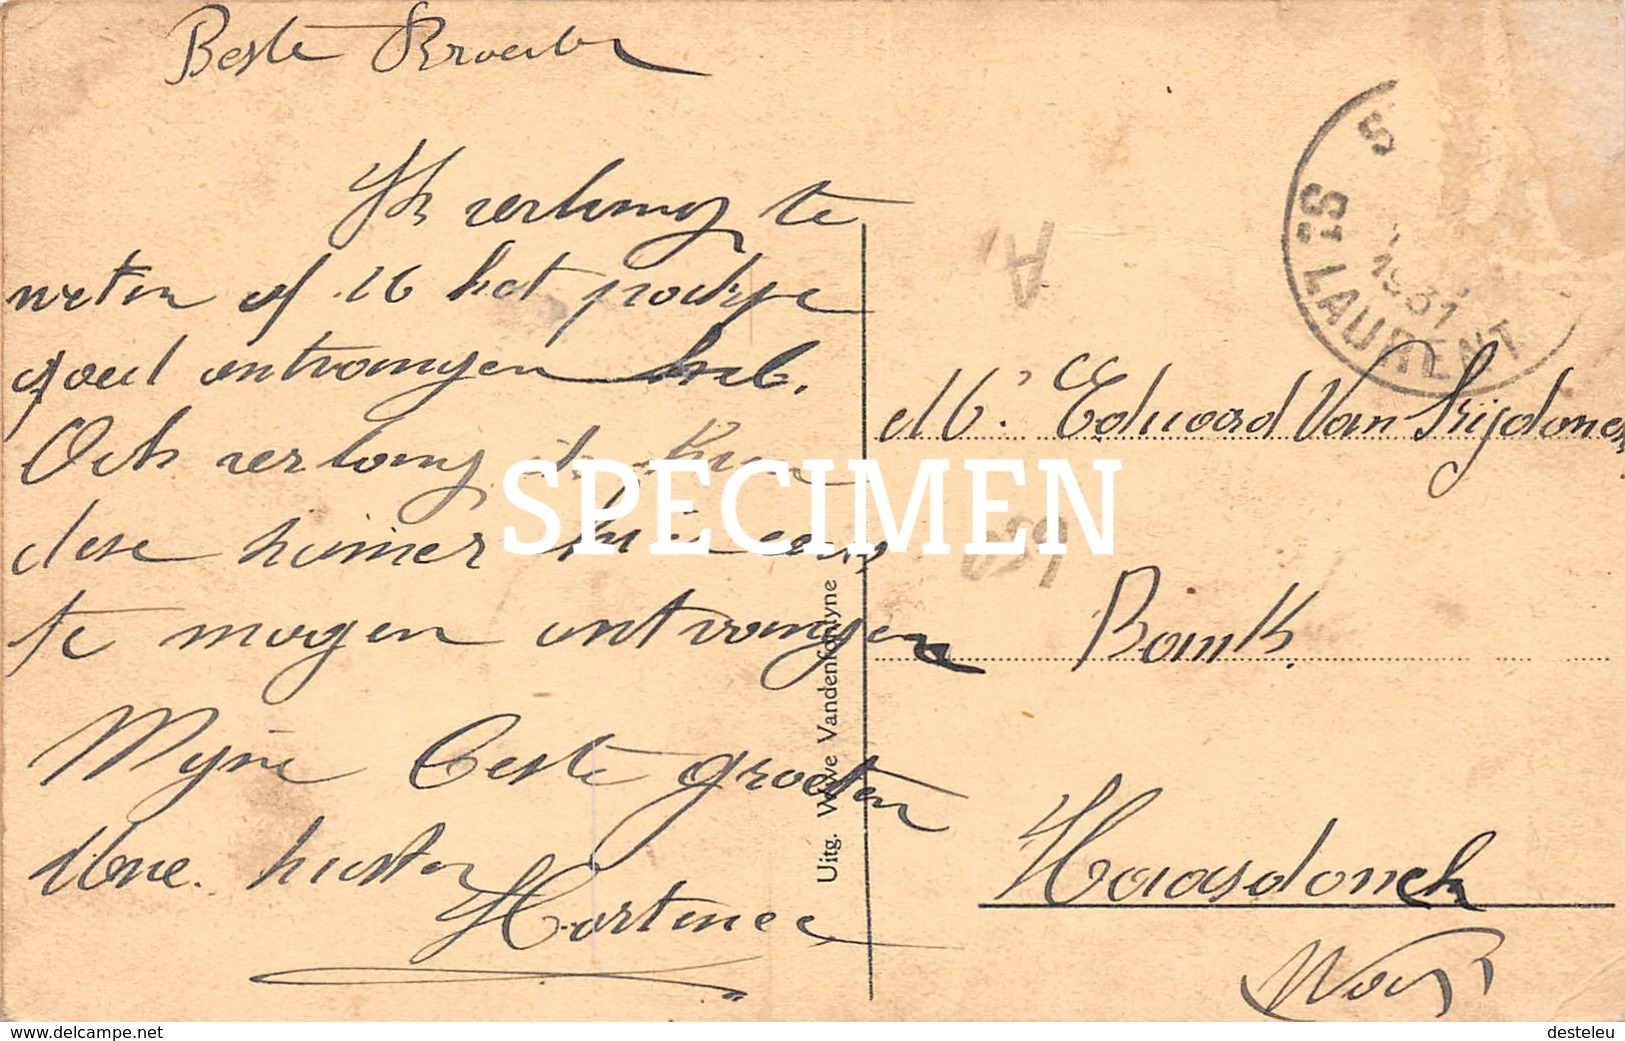 Beste Broeder
Ik verlang te
weten of ik het pockje
goed ontvangen heb.
Ook verlang ik
dese kumer
te mogen ontvangen
Myne Beste groeten
Uwe zuster
Hortence
Uitg. Wwe Vandenfontyne
S
St LAURENT
1931
A
Mr. Eduoard Van Srijdonck
Bank
Haasdonck
Waes
SPECIMEN
www.delcampe.net
desteleu